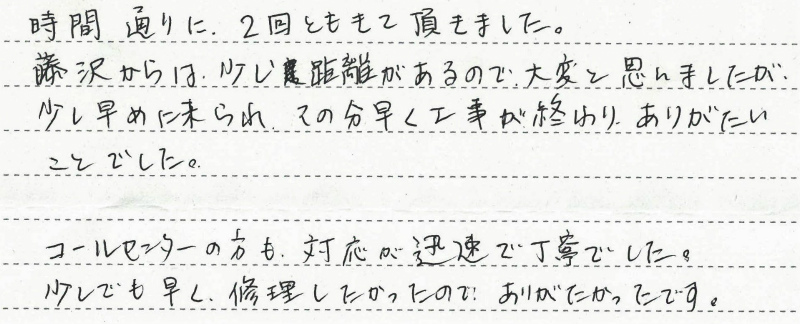 時間通りに、2回ともきて頂きました。
藤沢からは、少し距離があるので、大変と思いましたが、
少し早めに来られ、その分早く工事が終わり、ありがたい
ことでした。
コールセンターの方も、対応が迅速で丁寧でした。
少しでも早く、修理したかったので、ありがたかったです。